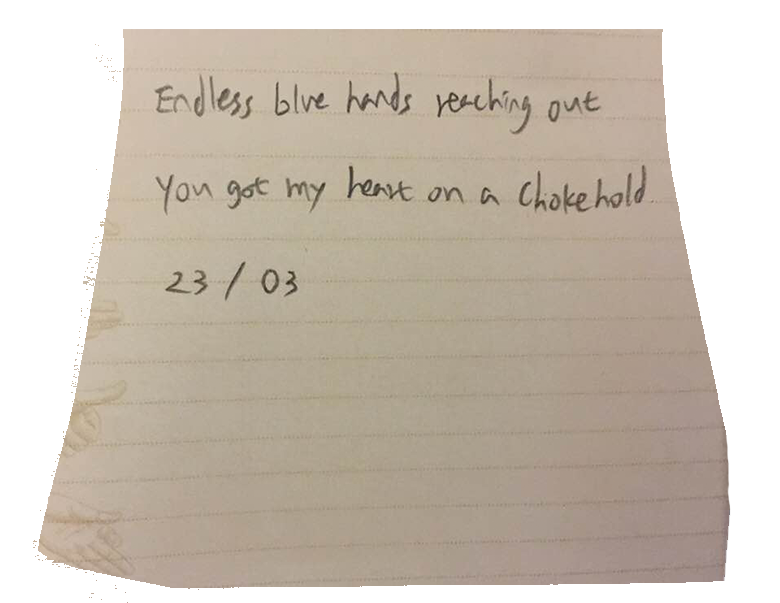 Endless blue hands reaching out
You got my heart on a chokehold
23 / 03